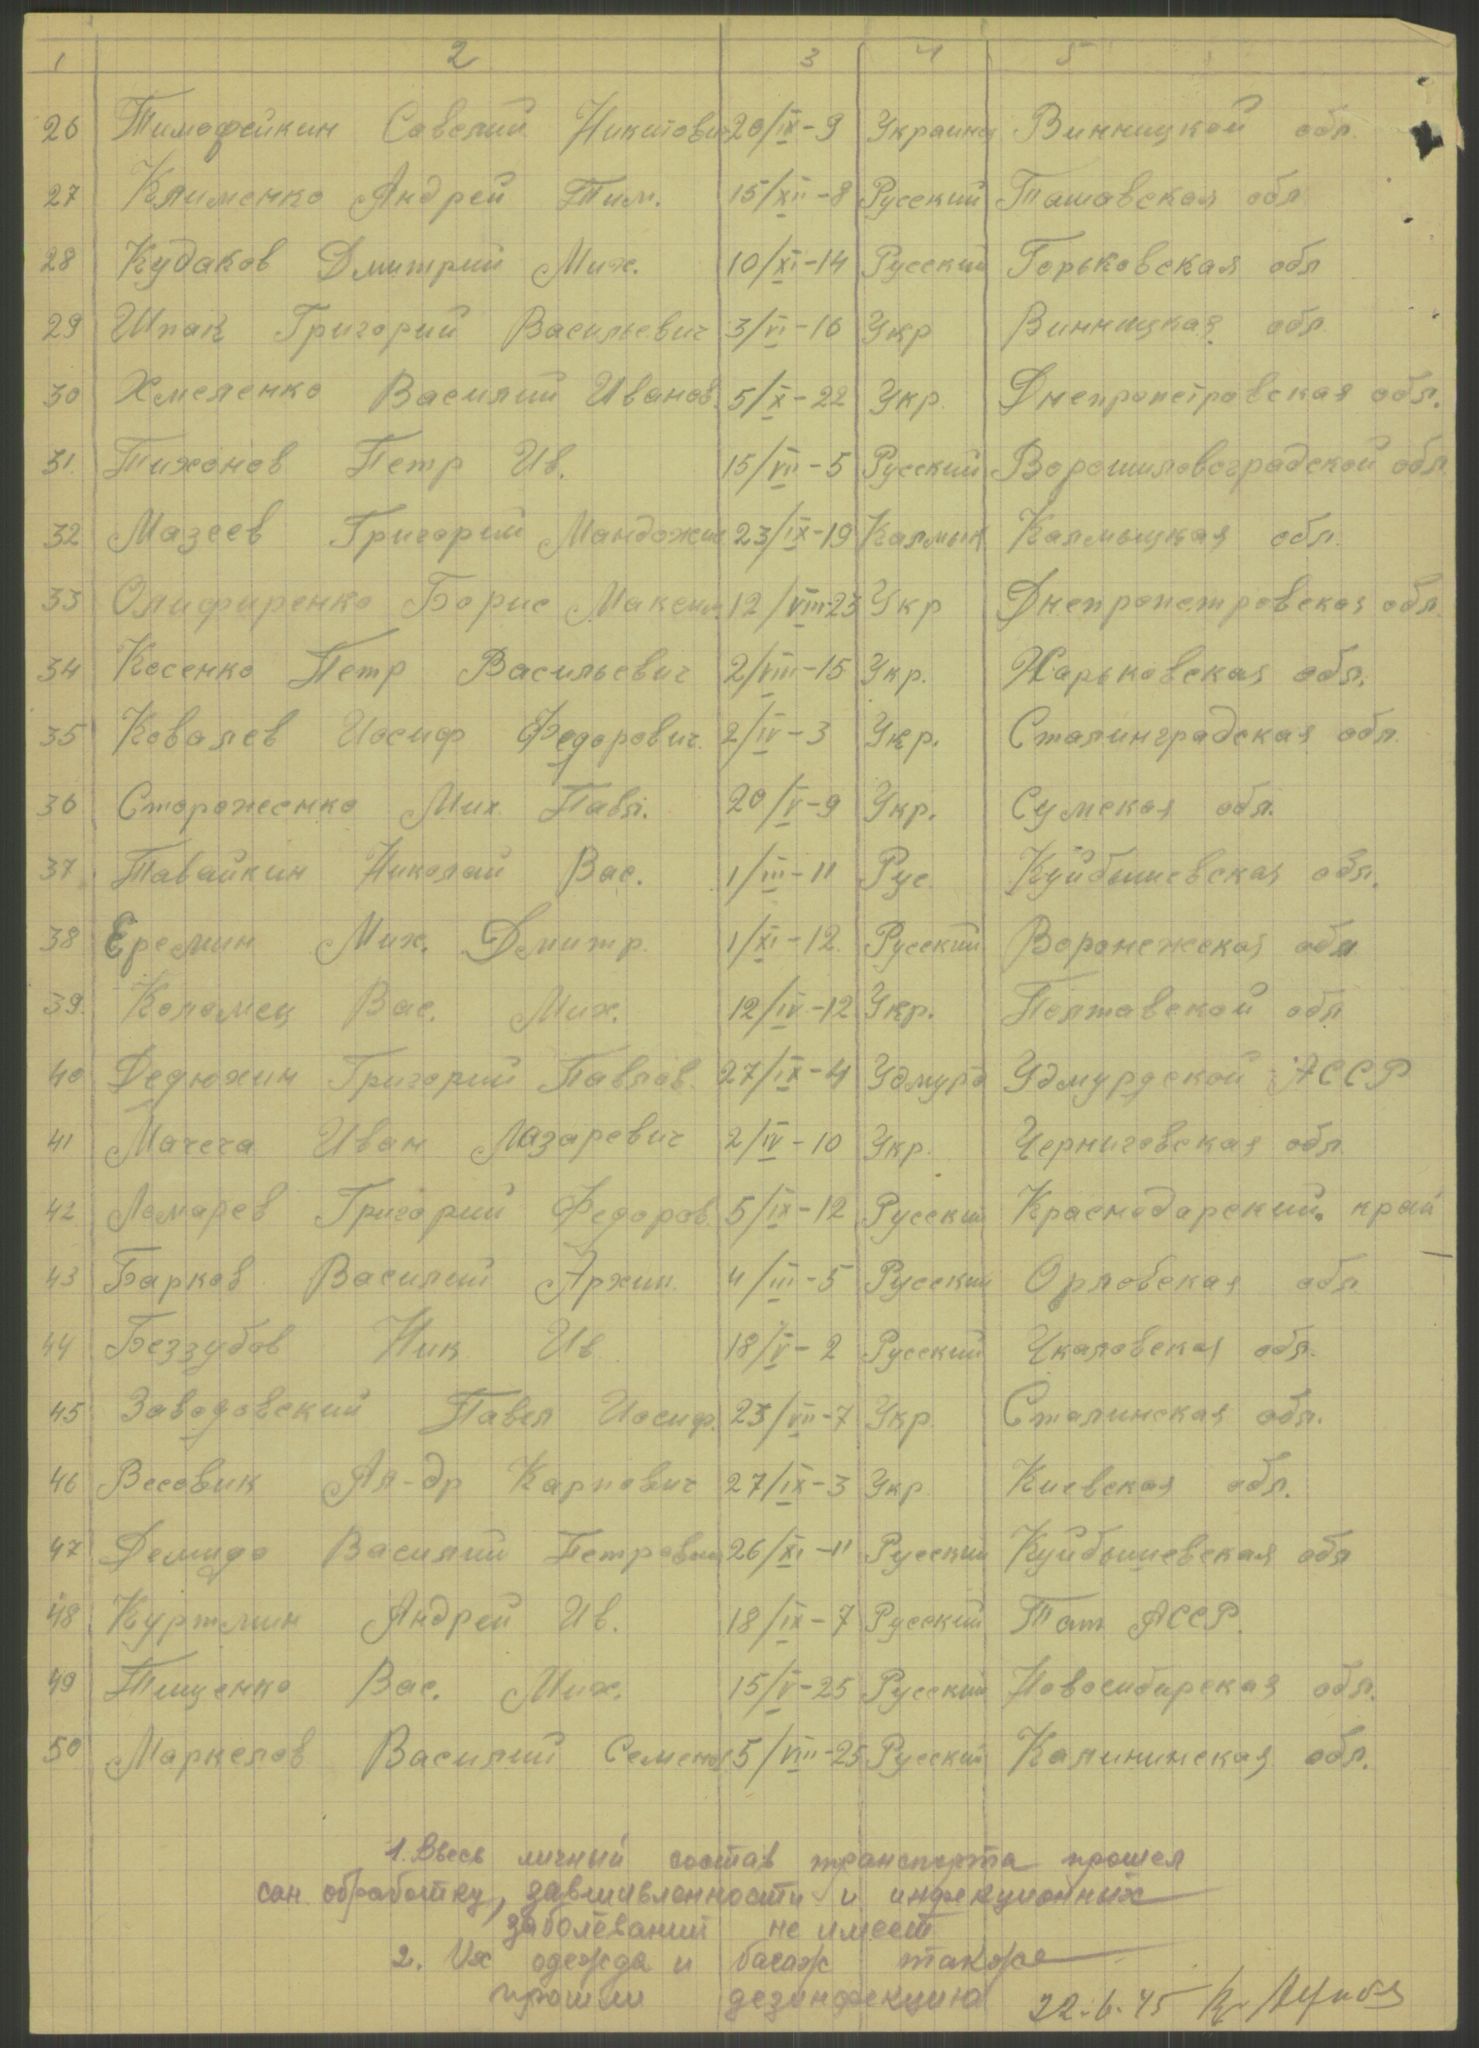 1 2 3 4 5
26 Тимофейкин Савелий Никитович 20/IV-9 Украинец Винницкой обл.
27 Клименко Андрей Тим. 15/XII-8 Русский обл
28 Кудаков Дмитрий Мих. 10/XI-14 Русский Горьковская обл
29 Шпак Григорий Васильевич 3/VI-16 Укр Винницкая обл.
30 Хмеленко Василий Иванов. 5/X-22 Укр. Днепропетровская обл.
31. Тихонов Петр Ив. 15/VII-5 Русский Ворошиловоградской обл
32 Мазеев Григорий 23/IX-19 Калмык Калмыцкая обл.
33 Олифиренко Борис Максим. 12/VIII-23 Укр Днепропетровская обл.
34 Косенко Петр Васильевич 2/VIII-15 Укр. Харьковская обл.
35 Ковалев Иосиф Федорович. 2/IV-3 Укр. Сталинградская обл.
36 Стороженко Мих Павл. 20/V-9 Укр. Сумская обл.
37 Тавайкин Николай Вас. 1/III-11 Рус Куйбышевская обл.
38 Еремин Мих. Дмитр. 1/XI-12. Русский Воронежская обл
39. Коломец Вас. Мих. 12/IV-12 Укр. Полтавской обл
40 Дедюхин Григорий Павлов. 27/IX-4 Удмурд Удмурдской АССР
41 Мачеча Иван Лазаревич 2/IV-10 Укр. Черниговская обл.
42 Ломарев Григорий Федоров. 5/IX-12 Русский Краснодарский край
43 Барков Василий Архип. 4/III-5 Русский Орловская обл
44 Беззубов Ник Ив 18/V-2 Русский Чкаловская обл.
45 Заводовский Павел Иосиф. 23/VII-7 Укр. Сталинская обл.
46 Весовик Ал-др Карпович 27/IX-3 Укр Киевская обл.
47 Демидо Василий Петрович 26/XI-11 Русский Куйбышевская обл
48 Куртмин Андрей Ив. 18/IX-7 Русский Тат АССР.
49 Тищенко Вас. Мих. 15/V-25 Русский Новосибирская обл.
50 Маркелов Василий Семенов 5/VIII-25 Русский Калининская обл.
1. Ввесь личный состав транспорта прошел
сан. обработку, завшивленности и инфекционных
заболеваний не имеет
2. Их одежда и багаж также
прошли дезинфекцию 22.6.45